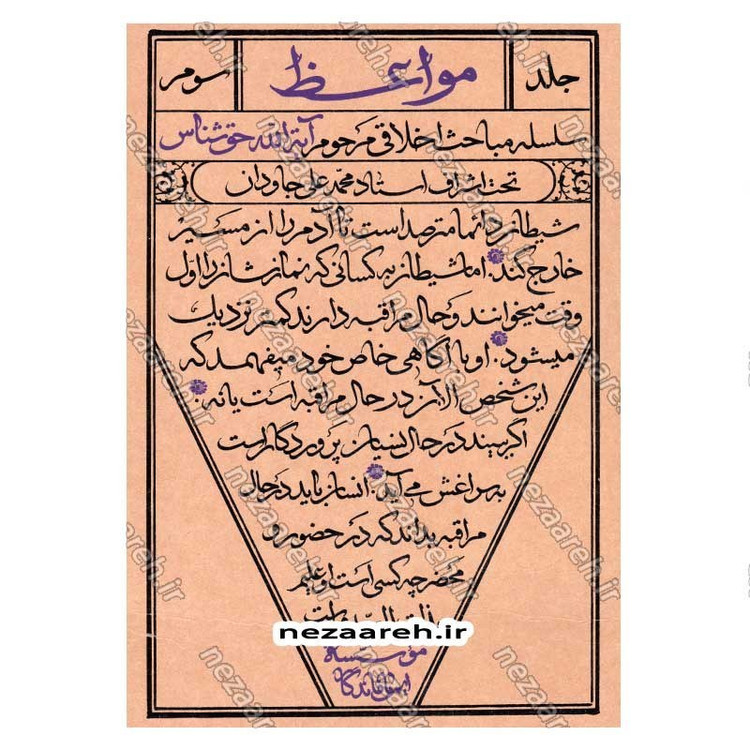 جلد
مواعظ
سوم
سلسله مباحث اخلاقی مرحوم آیة الله حق شناس
تحت اشراف استاد محمد علی جاودان
شیطان دائما مترصد است تا آدم را از مسیر
خارج کند. اما شیطان به کسانی که نمازشان را اول
وقت میخوانند و حال مراقبه دارند کمتر نزدیک
میشود. او با آگاهی خاص خود میفهمد که
این شخص الان در حال مراقبه است یا نه.
اگر ببیند در حال نسیان پروردگار است
به سراغش می آید. انسان باید در حال
مراقبه بداند که در حضور و
محضر چه کسی است او علیم
nezaareh.ir
مؤسسه